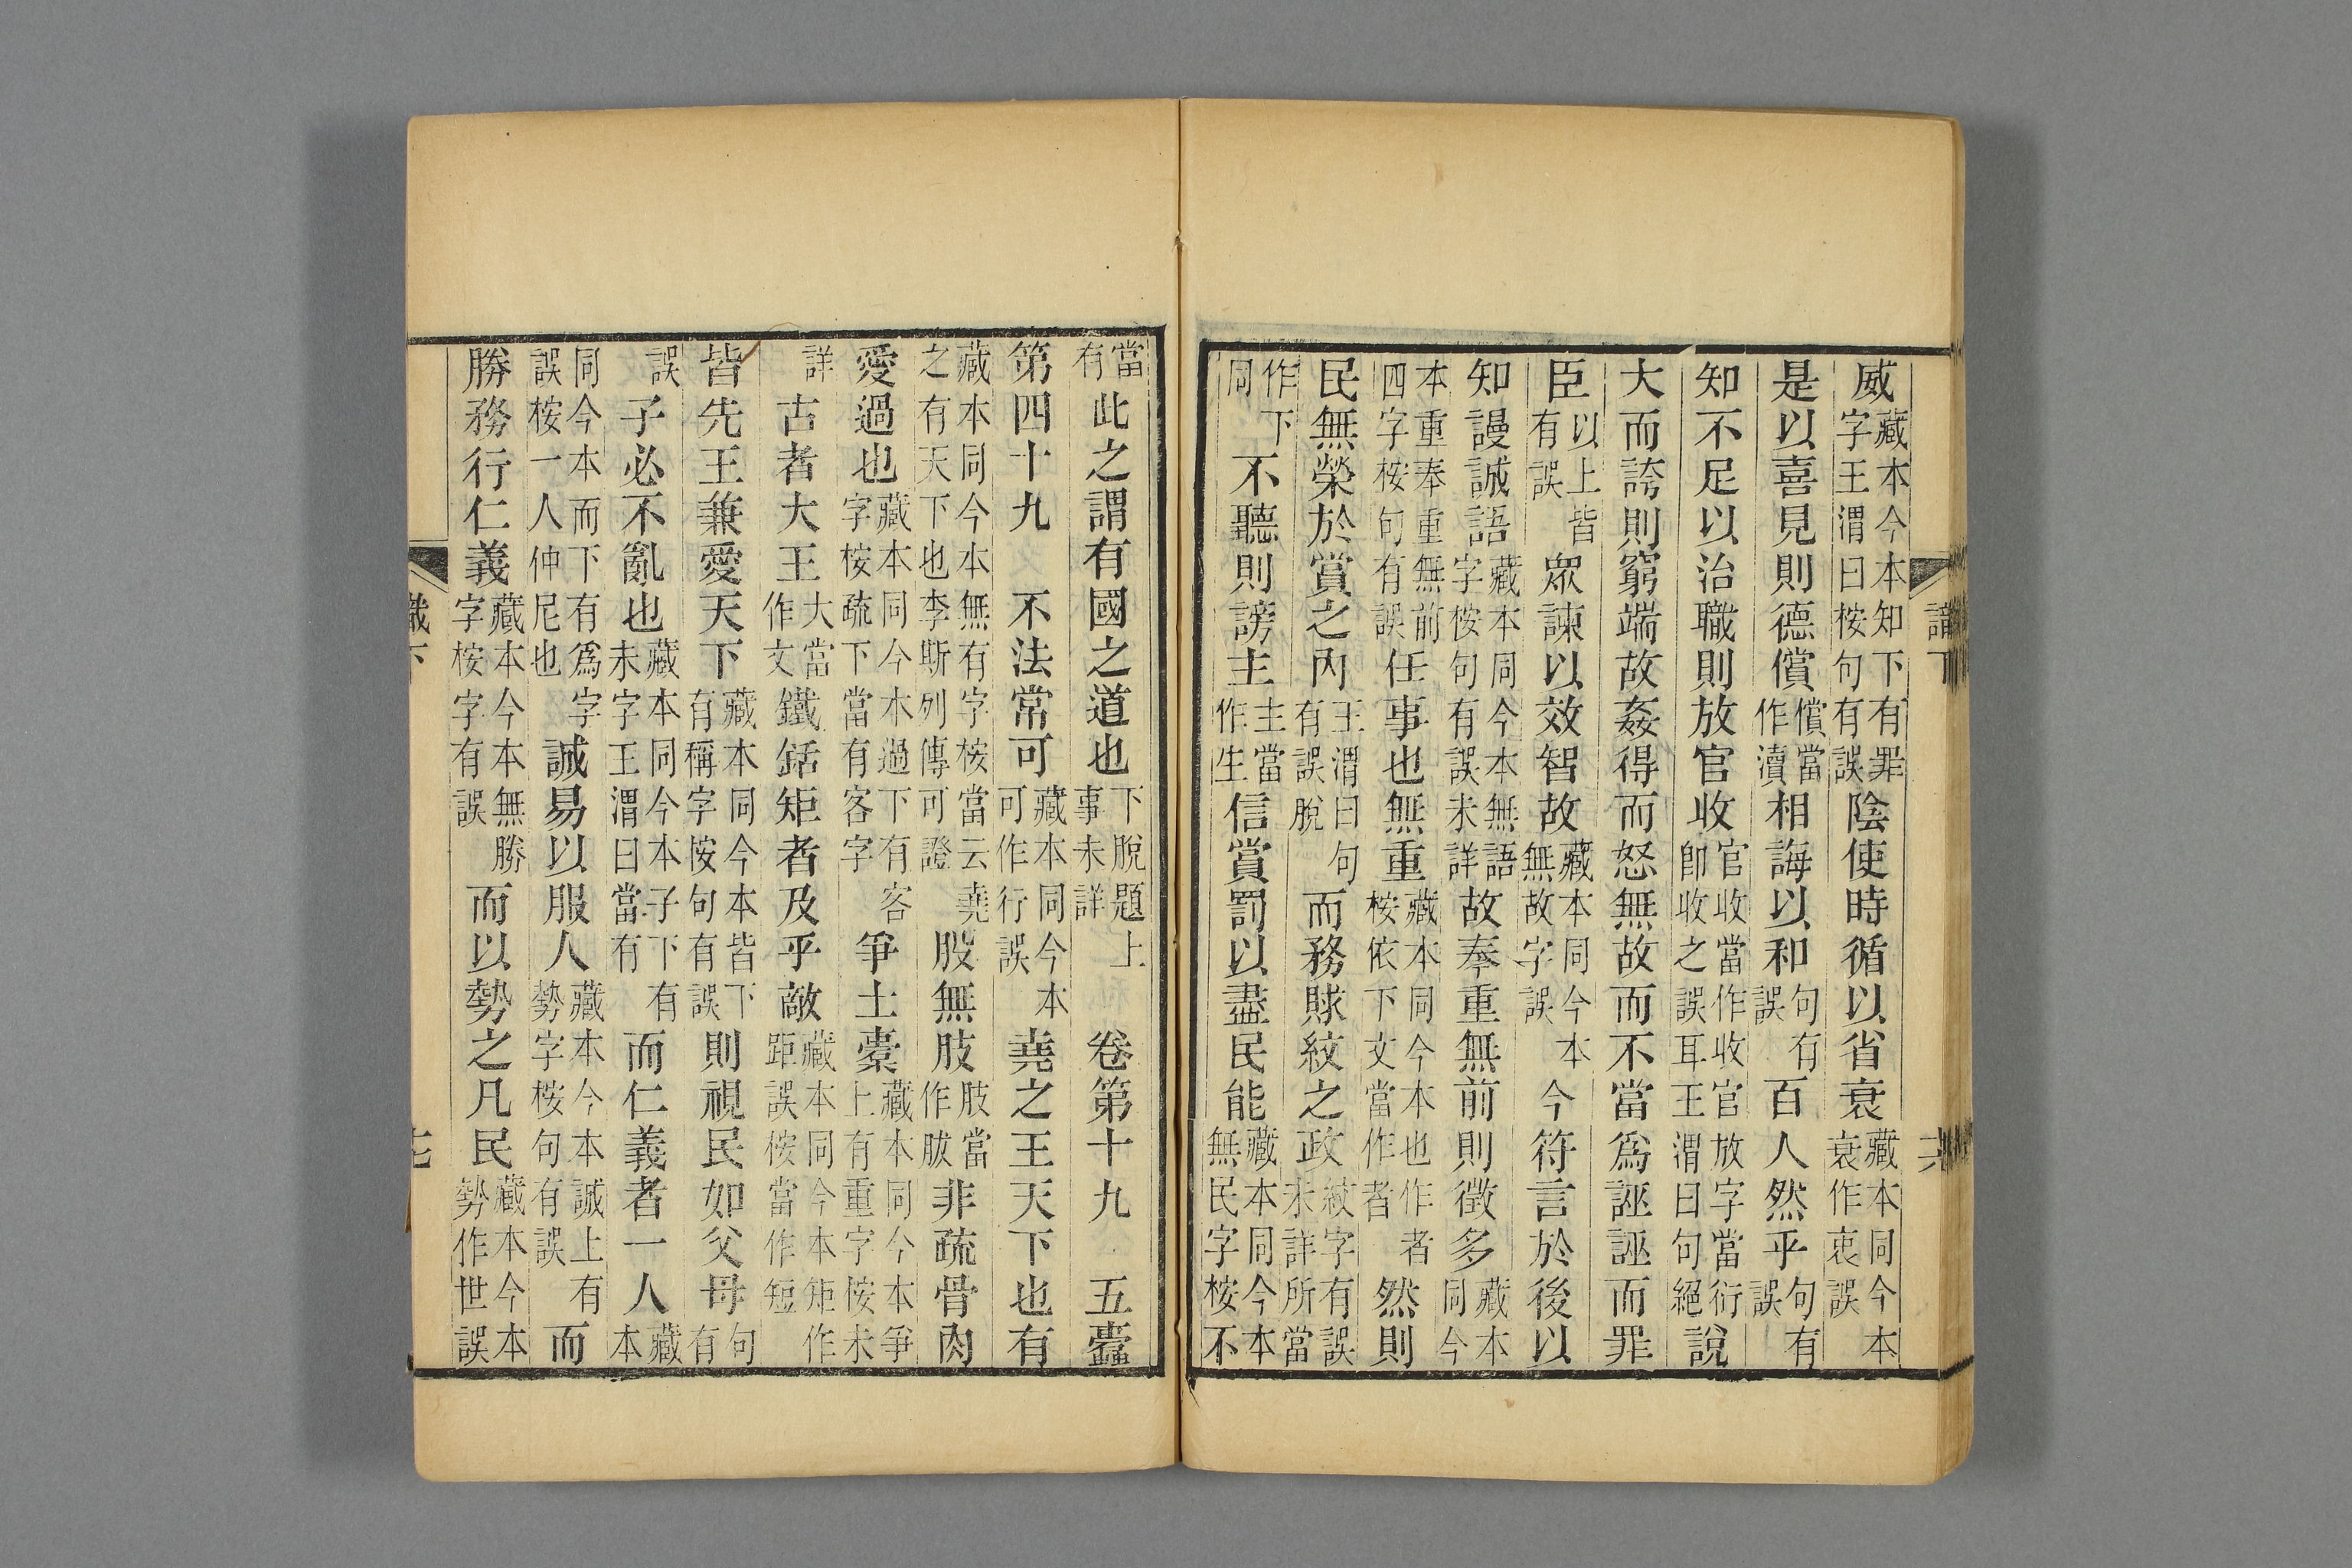 威藏本今本知下有罪字王渭曰桉句有誤陰使時循以省衰藏本同今本衰作衷誤
是以喜見則德償償當作瀆相誨以和句有誤百人然乎句有誤
知不足以治職則放官收官收當作收官放字當衍卽收之誤耳王渭曰句絕說
大而誇則窮端故姦得而怒無故而不當爲誣誣而罪
臣以上皆有誤眾諫以效智故藏本同今本無故字誤今符言於後以
知謾誠語藏本同今本無語字桉句有誤未詳故奉重無前則徵多藏本同今
本重奉重無前四字桉句有誤任事也無重藏本同今本也作者桉依下文當作者然則
民無榮於賞之內王渭曰句有誤脫而務賕紋之政紋字有誤未詳所當
作下同不聽則謗主主當作生信賞罰以盡民能藏本同今本無民字桉不
當有此之謂有國之道也下脫題上事未詳卷第十九五蠹
第四十九不法常可藏本同今本可作行誤堯之王天下也有
藏本同今本無有字桉當云堯之有天下也李斯列傳可證股無肢肢當作胈非疏骨肉
愛過也藏本同今本過下有客字桉疏下當有客字爭土橐藏本同今本爭上有重字桉未
詳古者大王大當作文鐵銛矩者及乎敵藏本同今本矩作距誤桉當作短
皆先王兼愛天下藏本同今本皆下有稱字桉句有誤則視民如父母句有
誤子必不亂也藏本同今本子下有未字王渭曰當有而仁義者一人藏本
同今本而下有爲字誤桉一人仲尼也誠易以服人藏本今本誠上有勢字桉句有誤而
勝務行仁義藏本今本無勝字桉字有誤而以勢之凡民藏本今本勢作世誤